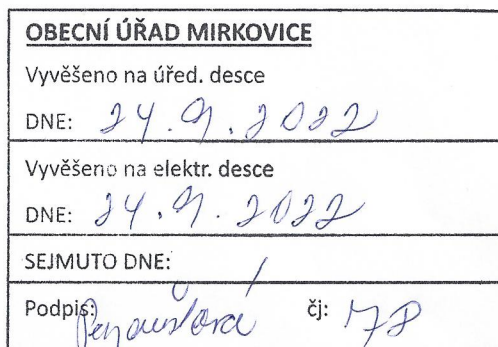 OBECNÍ ÚŘAD MIRKOVICE
Vyvěšeno na úřed. desce
DNE: 24.9.2022
Vyvěšeno na elektr. desce
DNE: 24.9.2022
SEJMUTO DNE: /
Podpis: čj: 78